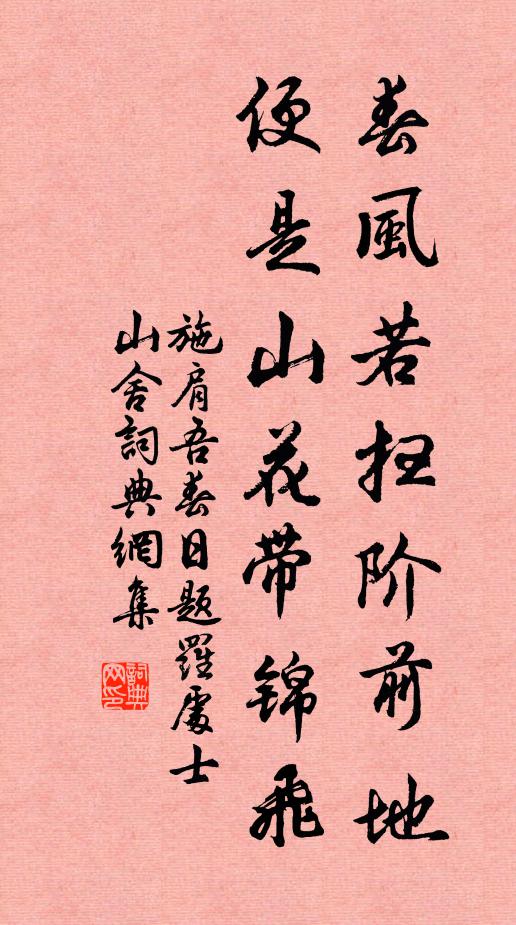 春風若扫阶前地
便是山花带锦飛
施肩吾春日題羅處士
山舍詞典網集
詞典网印